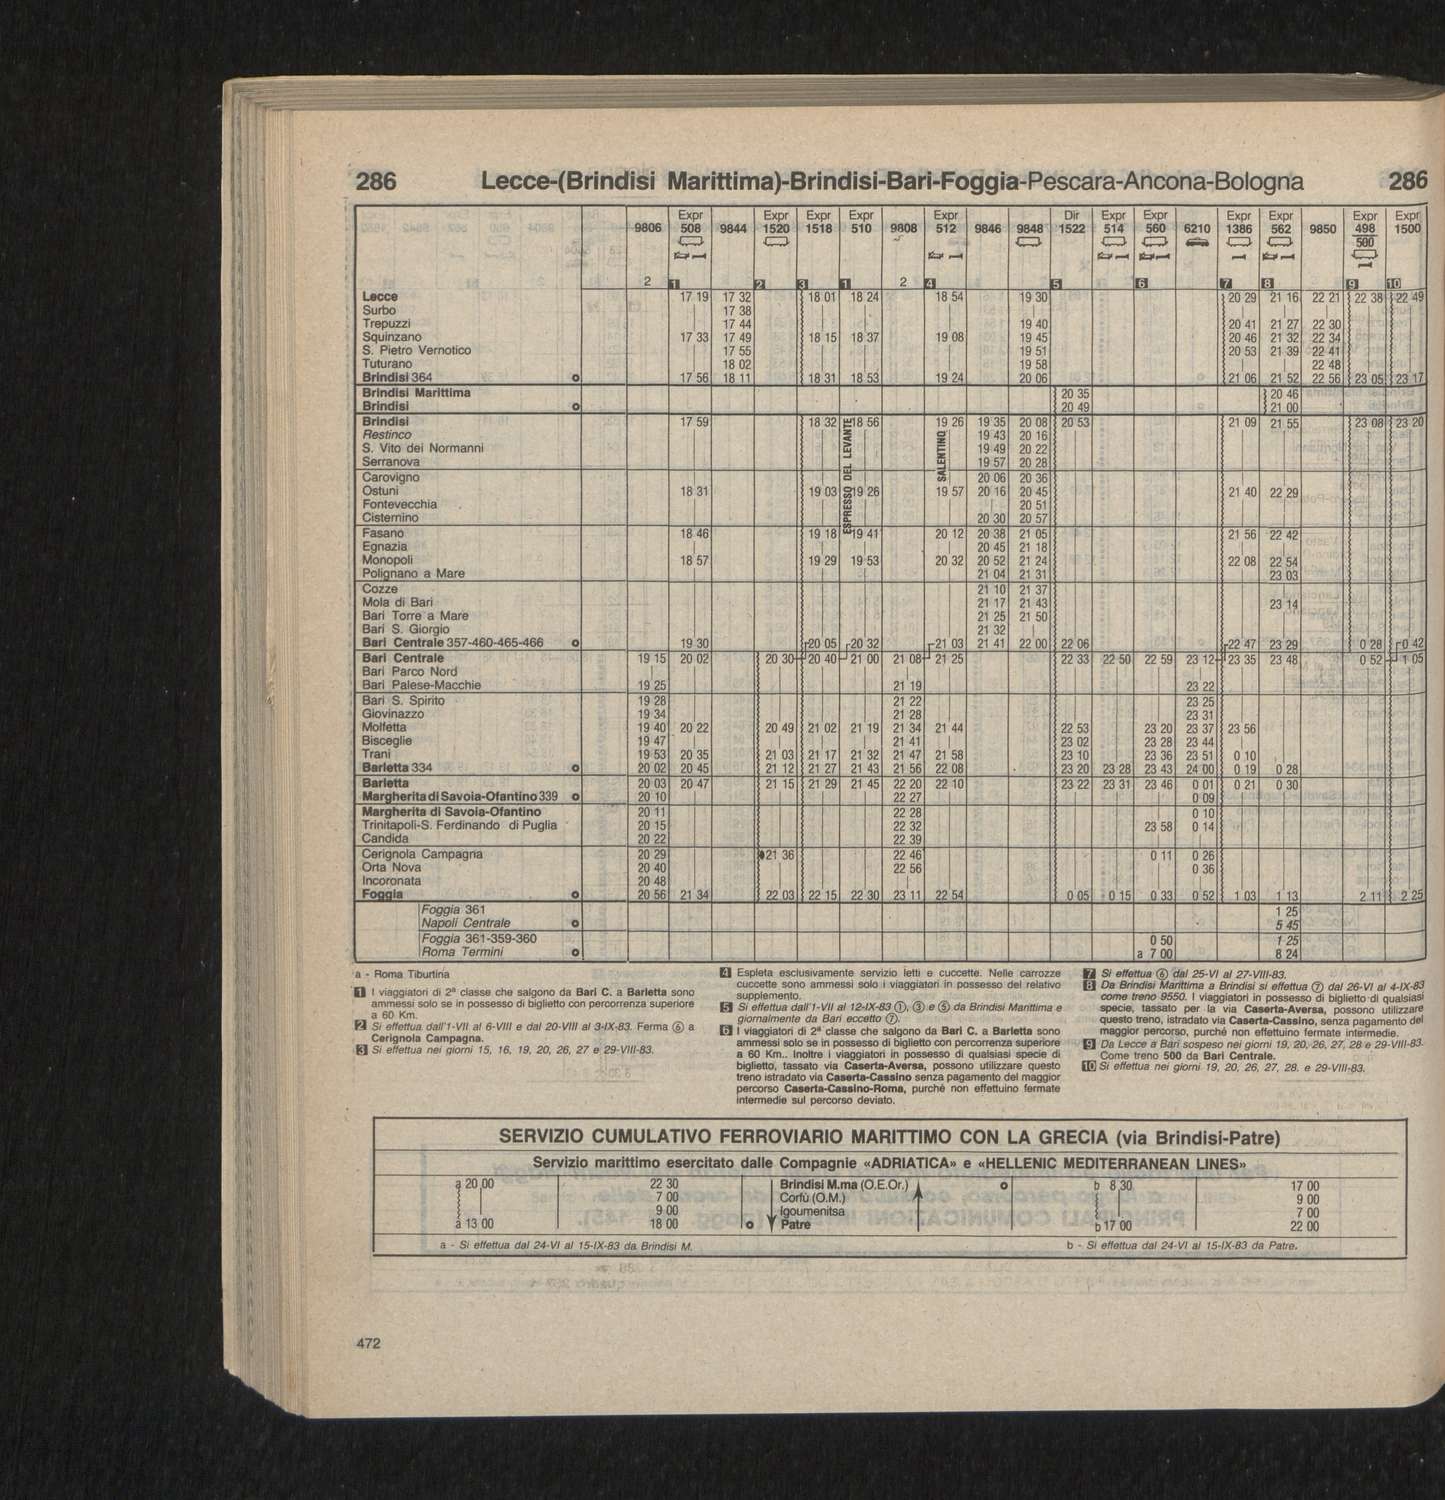 286 Lecce-(Brindisi Marittima)-Brindisi-Bari-Foggia-Pescara-Ancona-Bologna 286
Expr Expr Expr Expr Expr Dir Expr Expr Expr Expr Expr Expr
9806 508 9844 1520 1518 510 9808 512 9846 9848 1522 514 560 6210 1386 562 9850 498 1500
500
2 1 2 3 1 2 4 5 6 7 8 9 10
Lecce 17 19 17 32 18 01 18 24 18 54 19 30 20 29 21 16 22 21 22 38 22 49
Surbo 17 38
Trepuzzi 17 44 19 40 20 41 21 27 22 30
Squinzano 17 33 17 49 18 15 18 37 19 08 19 45 20 46 21 32 22 34
S. Pietro Vernotico 17 55 19 51 20 53 21 39 22 41
Tuturano 18 02 19 58 22 48
Brindisi 364 17 56 18 11 18 31 18 53 19 24 20 06 21 06 21 52 22 56 23 05 23 17
Brindisi Marittima 20 35 20 46
Brindisi 20 49 21 00
Brindisi 17 59 18 32 18 56 19 26 19 35 20 08 20 53 21 09 21 55 23 08 23 20
Restinco 19 43 20 16
S. Vito dei Normanni 19 49 20 22
Serranova 19 57 20 28
Carovigno 20 06 20 36
Ostuni 18 31 19 03 19 26 19 57 20 16 20 45 21 40 22 29
Fontevecchia 20 51
Cisternino 20 30 20 57
ESPRESSO DEL LEVANTE
SALENTINO
Fasano 18 46 19 18 19 41 20 12 20 38 21 05 21 56 22 42
Egnazia 20 45 21 18
Monopoli 18 57 19 29 19 53 20 32 20 52 21 24 22 08 22 54
Polignano a Mare 21 04 21 31 23 03
Cozze 21 10 21 37
Mola di Bari 21 17 21 43 23 14
Bari Torre a Mare 21 25 21 50
Bari S. Giorgio 21 32
Bari Centrale 357-460-465-466 19 30 20 05 20 32 21 03 21 41 22 00 22 06 22 47 23 29 0 28 0 42
Bari Centrale 19 15 20 02 20 30 20 40 21 00 21 08 21 25 22 33 22 50 22 59 23 12 23 35 23 48 0 52 1 05
Bari Parco Nord
Bari Palese-Macchie 19 25 21 19 23 22
Bari S. Spirito 19 28 21 22 23 25
Giovinazzo 19 34 21 28 23 31
Molfetta 19 40 20 22 20 49 21 02 21 19 21 34 21 44 22 53 23 20 23 37 23 56
Bisceglie 19 47 21 41 23 02 23 28 23 44
Trani 19 53 20 35 21 03 21 17 21 32 21 47 21 58 23 10 23 36 23 51 0 10
Barletta 334 20 02 20 45 21 12 21 27 21 43 21 56 22 08 23 20 23 28 23 43 24 00 0 19 0 28
Barletta 20 03 20 47 21 15 21 29 21 45 22 20 22 10 23 22 23 31 23 46 0 01 0 21 0 30
Margherita di Savoia-Ofantino 339 20 10 22 27 0 09
Margherita di Savoia-Ofantino 20 11 22 28 0 10
Trinitapoli-S. Ferdinando di Puglia 20 15 22 32 23 58 0 14
Candida 20 22 22 39
Cerignola Campagna 20 29 21 36 22 46 0 11 0 26
Orta Nova 20 40 22 56 0 36
Incoronata 20 48
Foggia 20 56 21 34 22 03 22 15 22 30 23 11 22 54 0 05 0 15 0 33 0 52 1 03 1 13 2 11 2 25
Foggia 361 1 25
Napoli Centrale 5 45
Foggia 361-359-360 0 50 1 25
Roma Termini a 7 00 8 24
a - Roma Tiburtina
1 I viaggiatori di 2ª classe che salgono da Bari C. a Barletta sono
ammessi solo se in possesso di biglietto con percorrenza superiore
a 60 Km.
2 Si effettua dall'1-VII al 6-VIII e dal 20-VIII al 3-IX-83. Ferma ⑥ a
Cerignola Campagna.
3 Si effettua nei giorni 15, 16, 19, 20, 26, 27 e 29-VIII-83.
4 Espleta esclusivamente servizio letti e cuccette. Nelle carrozze
cuccette sono ammessi solo i viaggiatori in possesso del relativo
supplemento.
5 Si effettua dall'1-VII al 12-IX-83 ①, ③ e ⑤ da Brindisi Marittima e
giornalmente da Bari eccetto ⑦.
6 I viaggiatori di 2ª classe che salgono da Bari C. a Barletta sono
ammessi solo se in possesso di biglietto con percorrenza superiore
a 60 Km.. Inoltre i viaggiatori in possesso di qualsiasi specie di
biglietto, tassato via Caserta-Aversa, possono utilizzare questo
treno istradato via Caserta-Cassino senza pagamento del maggior
percorso Caserta-Cassino-Roma, purché non effettuino fermate
intermedie sul percorso deviato.
7 Si effettua ⑥ dal 25-VI al 27-VIII-83.
8 Da Brindisi Marittima a Brindisi si effettua ⑦ dal 26-VI al 4-IX-83
come treno 9550. I viaggiatori in possesso di biglietto di qualsiasi
specie, tassato per la via Caserta-Aversa, possono utilizzare
questo treno, istradato via Caserta-Cassino, senza pagamento del
maggior percorso, purché non effettuino fermate intermedie.
9 Da Lecce a Bari sospeso nei giorni 19, 20, 26, 27, 28 e 29-VIII-83.
Come treno 500 da Bari Centrale.
10 Si effettua nei giorni 19, 20, 26, 27, 28. e 29-VIII-83.
SERVIZIO CUMULATIVO FERROVIARIO MARITTIMO CON LA GRECIA (via Brindisi-Patre)
Servizio marittimo esercitato dalle Compagnie «ADRIATICA» e «HELLENIC MEDITERRANEAN LINES»
a 20 00 22 30 Brindisi M.ma (O.E.Or.) b 8 30 17 00
7 00 Corfù (O.M.) 9 00
9 00 Igoumenitsa 7 00
a 13 00 18 00 Patre b 17 00 22 00
a - Si effettua dal 24-VI al 15-IX-83 da Brindisi M. b - Si effettua dal 24-VI al 15-IX-83 da Patre.
472